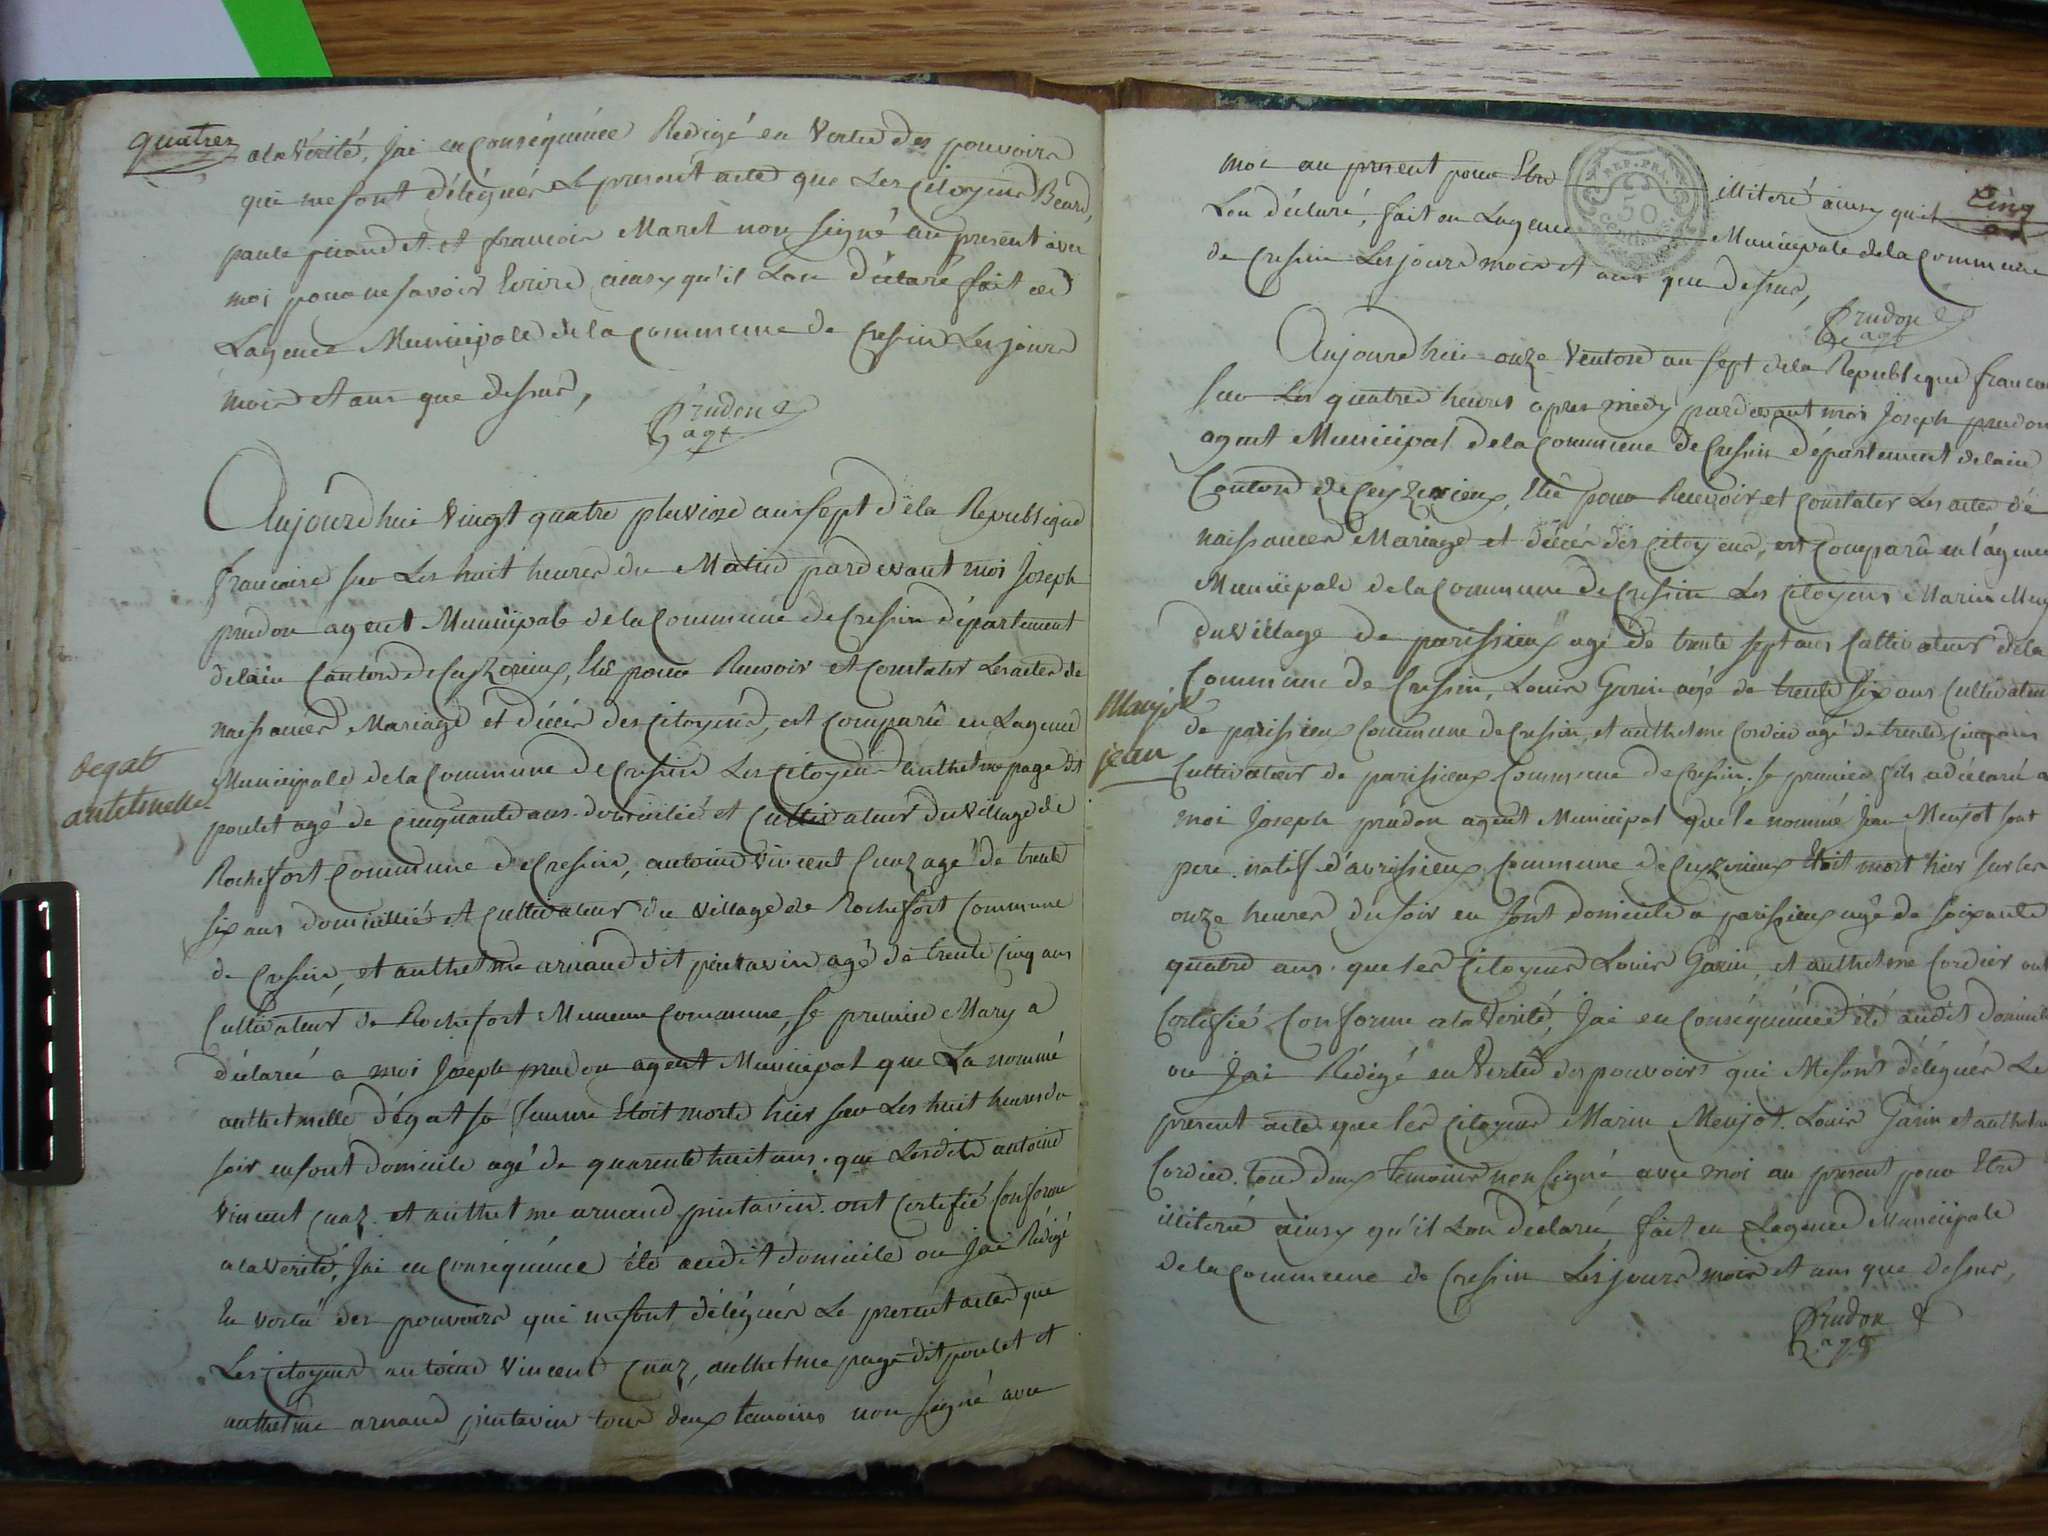 quatrez
a la Vérité, Jai en Conséquence Redigé en Vertu des pouvoirs
qui me sont délégués Le present acte que Les Citoyens Beard,
paule et francois Maret non signé au present avec
moi pour ne savoir Ecrire ainsy qu'il Lon déclaré fait en
Lagence Municipale de la commune de Cressin Les jours
mois et ans que dessus,
Prudon
agt
Aujourdhui Vingt quatre pluviose an sept de la Republique
francaise sur Les huit heures du Matin pardevant moi Joseph
prudon agent Municipale de la Commune de Cressin département
delain Canton de Ceyzerieux, Elu pour Recevoir et Constater Les actes de
naissances Mariage et décès des Citoyens, est comparû en Lagence
degat
antelmelle
Municipale de la Commune de Cressin Les Citoyens anthelme page dit
poulet agé de cinquante ans domicilié et Cultivateur du Village de
Rochefort Commune de Cressin, antoine Vincent Cuaz agé de trente
six ans domicillié et Cultivateur du village de Rochefort Commune
de Cressin, et anthelme arnaud dit pintavin agé de trente Cinq ans
Cultivateur de Rochefort Mememe Commune, Se premier Mary a
déclaré a moi Joseph prudon agent Municipal que La nommé
anthelmelle dégat sa femme Etoit morte hier sur Les huit heures du
soir en sont domicile agé de quarente huit ans, que Lesdits antoine
Vincent Cuaz et anthelme arnaud pintavin ont Certifié Conforme
a la Vérité, Jai en Conséquence été audit domicile ou Jai Rédigé
En vertu des pouvoirs qui me sont délégués Le present acte que
Les Citoyens antoine Vincent Cuaz, anthelme page dit poulet et
anthelme arnaud pintavin tous deux temoins non signé avec
moi au present pour Etre illiteré ainsy qu'il
Cinq
Lon déclaré, fait en Lagence Municipale de la Commune
de Cressin Les jours mois et ans que dessus,
REP. FRA
50
Prudon
agt
Aujourdhui onze Ventose an sept de la Republique francaise
sur Les quatre heures apres midy pardevant moi Joseph prudon
agent Municipal de la Commune de Cressin département delain
Canton de Ceyzerieux, Elu pour Recevoir et constater Les actes dé
naissances Mariage et décès des Citoyens, est Comparû en l'agence
Municipale de la Commune de Cressin Les Citoyens Marin
du Village de parissieux agé de trente sept ans Cultivateur de la
Commune de Cressin, Louis Garin agé de trente six ans Cultivateur
Manjot
jean
de parissieux Commune de Cressin, et anthelme Cordier agé de trente Cinq ans
Cultivateur de parissieux Commune de Cressin, Se premier fils a déclaré a
moi Joseph prudon agent Municipal que le nommé Jean Menjot sont
pere natif d'avrissieux Commune de Ceyzerieux Etoit mort hier sur les
onze heures du soir en sont domicile a parissieux agé de soixante
quatre ans. que les Citoyens Louis Garin, et anthelme Cordier ont
Certifié Conforme a la Verité, Jai en Conséquence été audit domicile
ou Jai Rédigé en Vertu des pouvoirs qui Me sont délégués Le
present acte que les Citoyens Marin Menjot, Louis Garin et anthelme
Cordier. tous deux Temoins non Signé avec moi au present pour Etre
illiteré ainsy qu'il Lon déclaré, fait en Lagence Municipale
de la Commune de Cressin Les jours mois et ans que dessus,
Prudon
agt